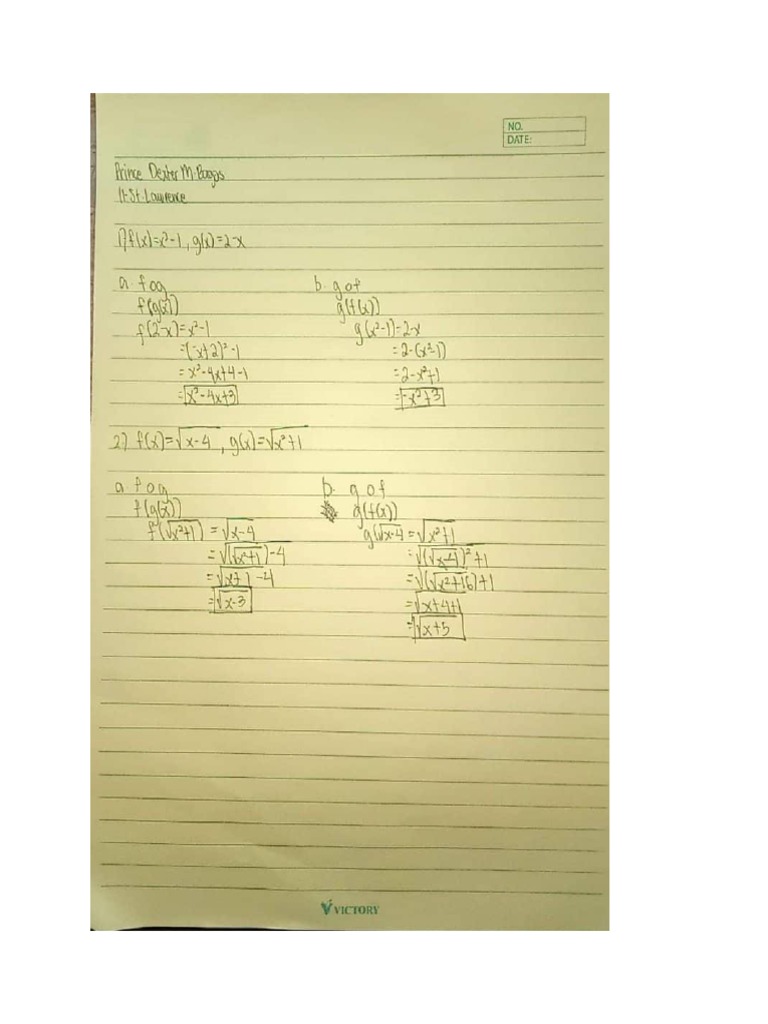 NO.
DATE:
Prince Dexter M.
11-St. Lawrence
1) f(x)=x²-1, g(x)=2-x
a. fog
f(g(x))
f(2-x)=x²-1
=(-x+2)²-1
=x²-4x+4-1
=x²-4x+3
b. gof
g(f(x))
g(x²-1)=2-x
=2-(x²-1)
=2-x²+1
=-x²+3
2) f(x)=√x-4, g(x)=√x²+1
a. fog
f(g(x))
f(√x²+1) = √x-4
=√(√x²+1)-4
=√x+1-4
=√x-3
b. gof
g(f(x))
g(√x-4 = √x²+1
=√(√x-4)²+1
=√(√x²+16)+1
=√x+4+1
=√x+5
VICTORY